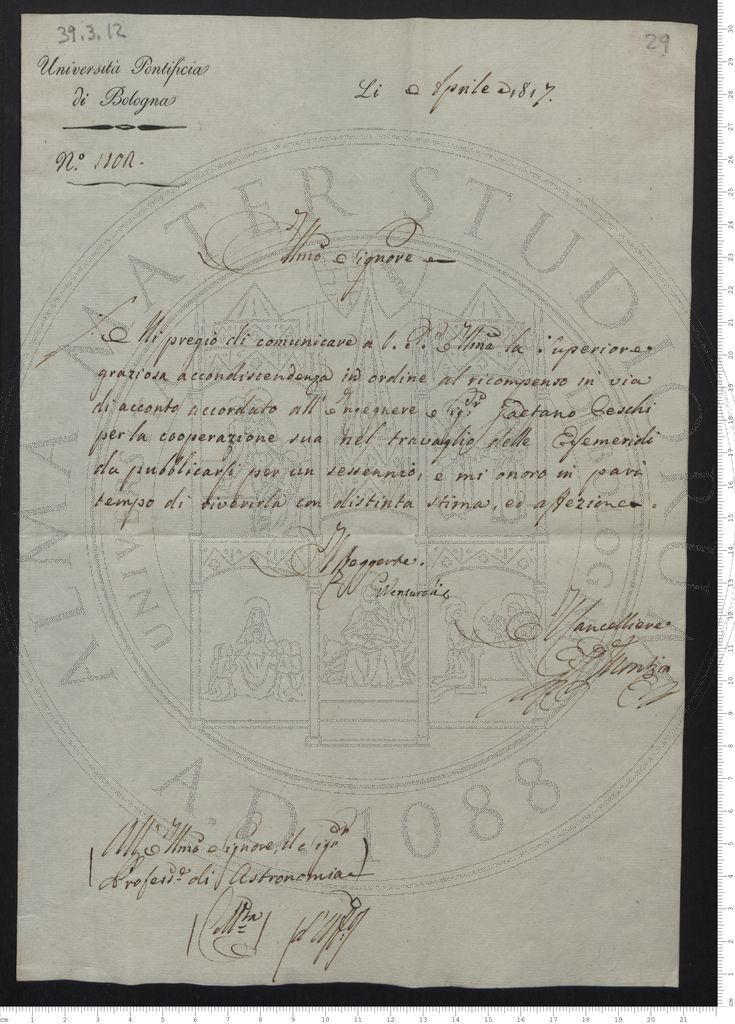 39.3.12
29
Università Pontificia
di Bologna
Li Aprile 1817.
N.º 110
Illmo Signore
Mi pregio di comunicare a V. S. Illma la Superiore
graziosa accondiscendenza in ordine al ricompenso in via
di acconto accordato all' Ingegnere Sigr Gaetano Ceschi
per la cooperazione sua nel travaglio delle Efemeridi
da pubblicarsi per un sessennio, e mi onoro in pari
tempo di riverirla con distinta stima, ed affezione.
Il Reggente.
Venturoli
Il Cancelliere
All' Illmo Signore, il Sigr
Profess.e di Astronomia
ALMA MATER STUDIORUM
A.D. 1088